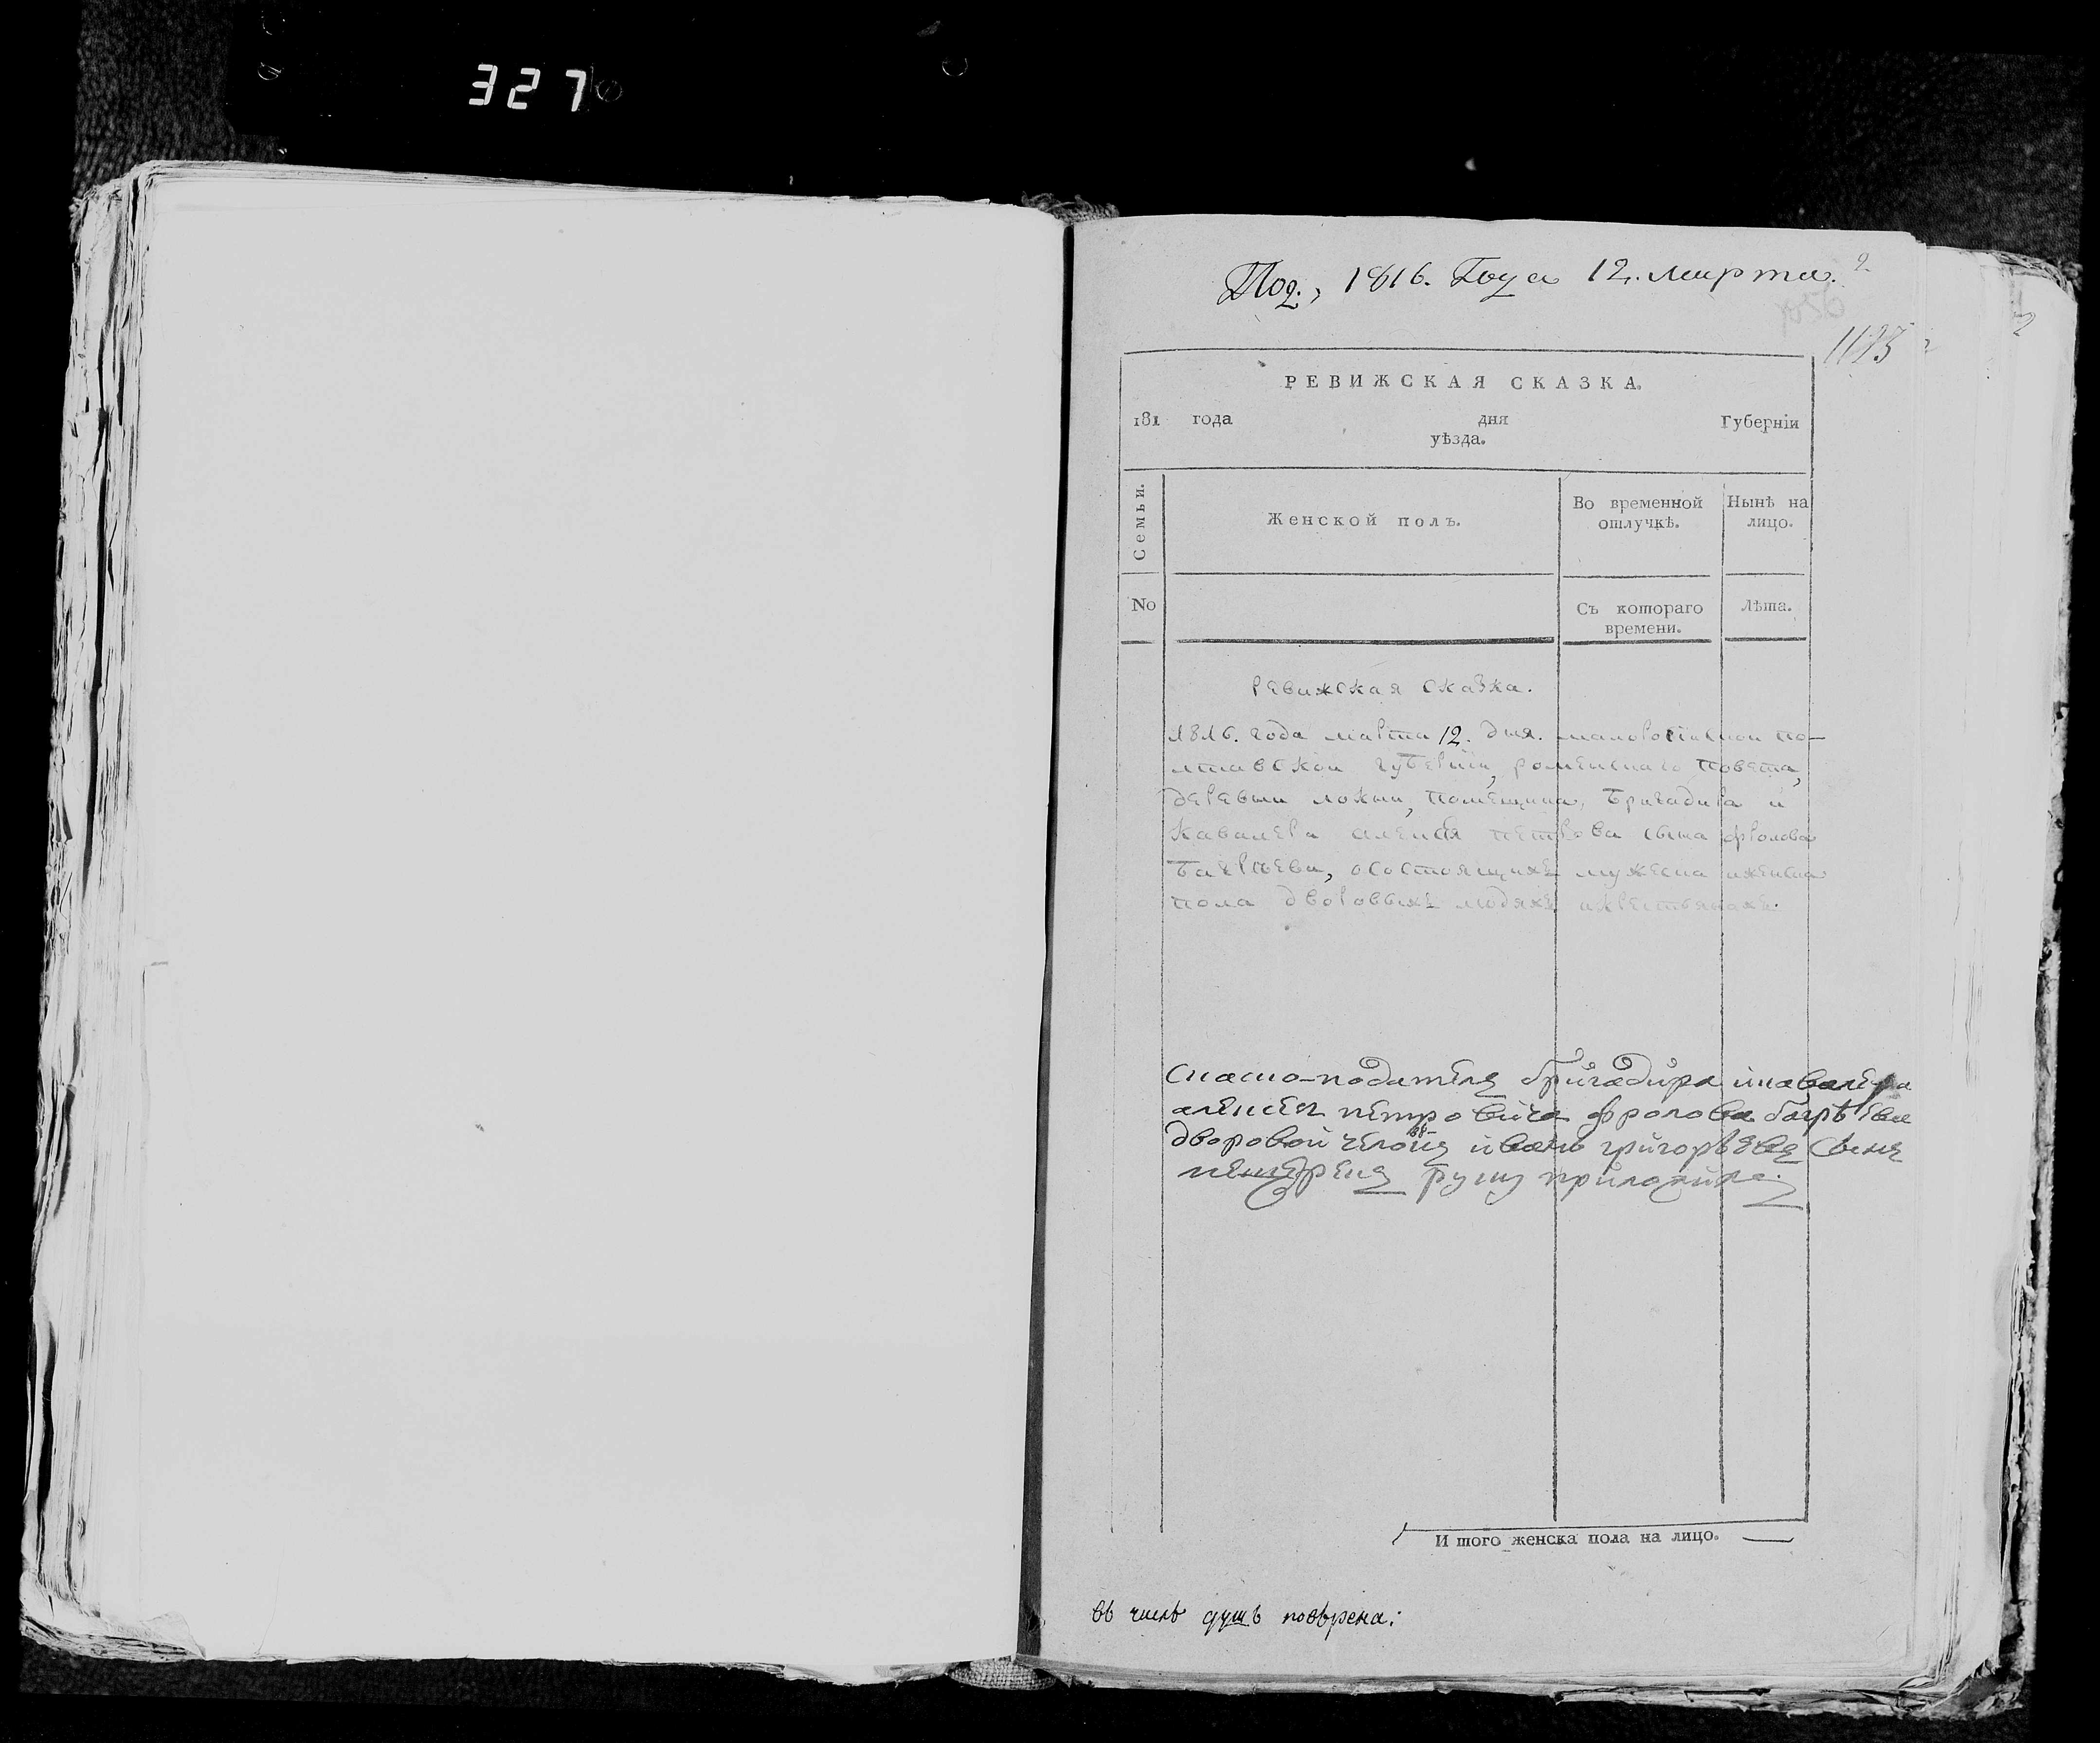 327
Под., 1816. Года 12. марта. 2
1123
РЕВИЖСКАЯ СКАЗКА.
181 года дня Губерніи
уѣзда.
Семьи. Женской полъ. Во временной отлучкѣ. Нынѣ на лицо.
No Съ котораго времени. Лѣта.
Ревижская сказка.
1816. года марта 12. дня. малоросійской по-
лтавской губерніи, роменскаго повета,
деревни локни, помещика, бригадира и
кавалера алексея петрова сына фролова
багреева, осостоящихъ мужеска иженска
пола дворовыхъ людяхъ икрестьянахъ.
бригадира икавалера
алексея петровича фролова багрѣева
дворовой иванъ григорьевъ сынъ
руку приложилъ.
И того женска пола на лицо.
въ числѣ душъ повѣрена: